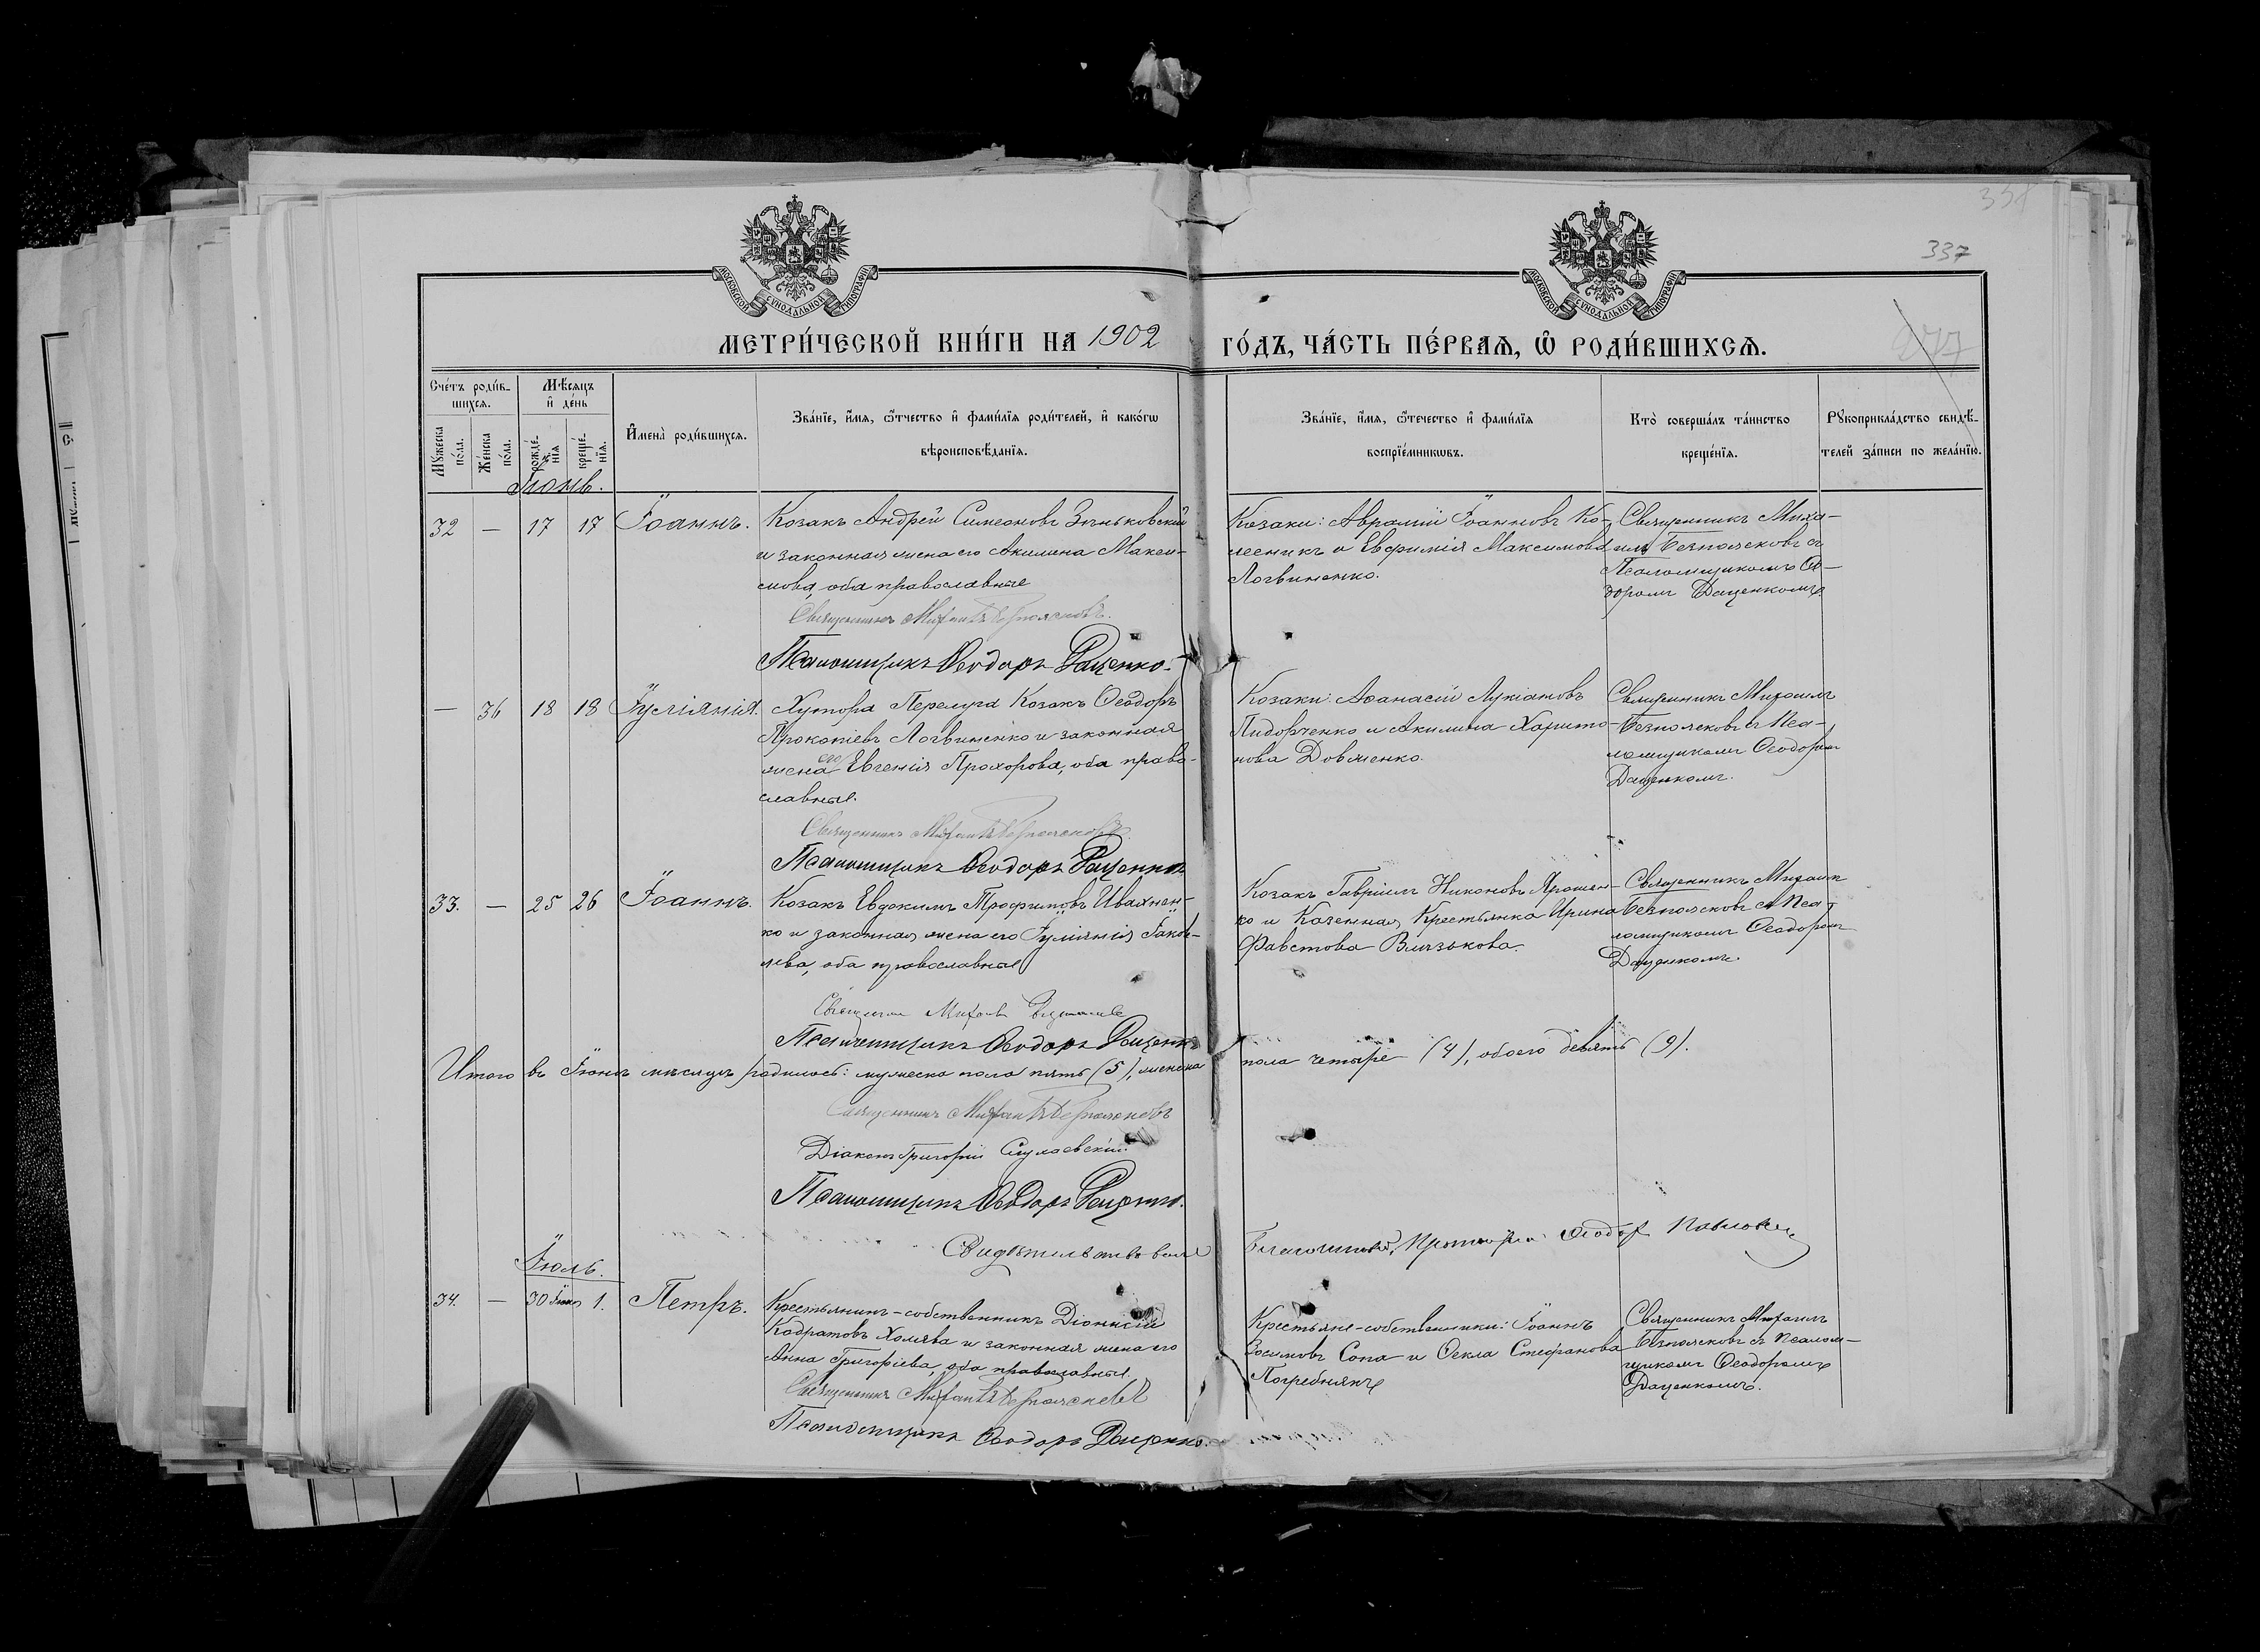 337
МОСКОВСКОЙ СѴНОДАЛЬНОЙ ТИПОГРАФІИ
МОСКОВСКОЙ СѴНОДАЛЬНОЙ ТИПОГРАФІИ
МЕТРИ́ЧЕСКОЙ КНИ́ГИ НА 1902 ГО́ДЪ, ЧА́СТЬ ПЕ́РВАѦ, Ѡ РОДИ́ВШИХСѦ.
277
Сче́тъ роди́в-
шихсѧ.
Мѣ́сѧцъ
и҆ де́нь
Мꙋ́жеска
по́ла.
Же́нска
по́ла.
рожде́-
нїѧ
креще́-
нїѧ.
И҆мена̀ роди́вшихсѧ.
Зва́нїе, и҆́мѧ, ѻ҆́тчество и҆ фами́лїѧ роди́телей, и҆ како́гѡ
вѣроисповѣ́данїѧ.
Зва́нїе, и҆́мѧ, ѻ҆те́чество и҆ фами́лїѧ
воспрїе́мникѡвъ.
Кто̀ соверша́лъ та́инство
креще́нїѧ.
Рꙋкоприкла́дство свидѣ́-
телей за́писи по жела́нїю.
Іюнь.
32 — 17 17 Іоаннъ.
Козакъ Андрей Симеоновъ Зѣньковскій
и законная жена его Акилина Макси-
мова, оба православные
Священникъ Михаилъ Безпоясковъ.
Псаломщикъ Ѳеодоръ Даценко.
Козаки: Аврамій Іоанновъ Ко-
лесникъ и Евфимія Максимова
Логвиненко.
Священникъ Миха-
илъ Безпоясковъ съ
Псаломщикомъ Ѳео-
доромъ Даценкомъ
— 36 18 18 Іуліанія.
Хутора Перелуга Козакъ Ѳеодоръ
Прокопіевъ Логвиненко и законная
жена его Евгенія Прохорова, оба право-
славные.
Священникъ Михаилъ Безпоясковъ.
Псаломщикъ Ѳеодоръ Даценко
Козаки: Аѳанасій Лукіановъ
Пидорченко и Акилина Харито-
нова Довженко.
Священникъ Михаилъ
Безпоясковъ съ Пса-
ломщикомъ Ѳеодоромъ
Даценкомъ.
33. — 25 26 Іоаннъ.
Козакъ Евдокимъ Трофимовъ Ивахнен-
ко и законная жена его Іуліанія Іаков-
лева, оба православные
Священникъ Михаилъ Безпоясковъ
Псаломщикъ Ѳеодоръ Даценко
Козакъ Гавріилъ Никоновъ Ярошен-
ко и Казенная Крестьянка Ирина
Фавстова Вязькова.
Священникъ Михаилъ
Безпоясковъ съ Пса-
ломщикомъ Ѳеодоромъ
Даценкомъ.
Итого въ Іюнѣ мѣсяцѣ родилось: мужеска пола пять (5), женска пола четыре (4), обоего девять (9).
Священникъ Михаилъ Безпоясковъ
Діаконъ Григорій
Псаломщикъ Ѳеодоръ Даценко.
Свидѣтельствовалъ Благочинный, Протоіерей Ѳеодоръ
Іюль.
34. — 30 Іюня 1. Петръ.
Крестьянинъ-собственникъ Діонисій
Кодратовъ Холява и законная жена его
Анна Григоріева, оба православные.
Священникъ Михаилъ Безпоясковъ
Псаломщикъ Ѳеодоръ Даценко.
Крестьяне-собственники: Іоаннъ
Зосимовъ Сопа и Ѳекла Стефанова
Погребнякъ
Священникъ Михаилъ
Безпоясковъ съ Псалом-
щикомъ Ѳеодоромъ
Даценкомъ.